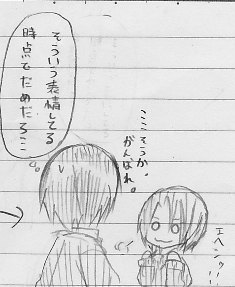 そういう表情してる
時点でだめだろ…
ここそうか。
がんばれ。
エヘンッ!!